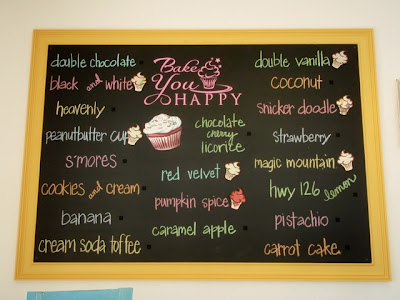 double chocolate
black and white
heavenly
peanutbutter cup
s'mores
cookies and cream
banana
cream soda toffee
Bake
You
HAPPY
chocolate
cherry
licorice
red velvet
pumpkin spice
caramel apple
double vanilla
coconut
snicker doodle
strawberry
magic mountain
hwy 126 lemon
pistachio
carrot cake